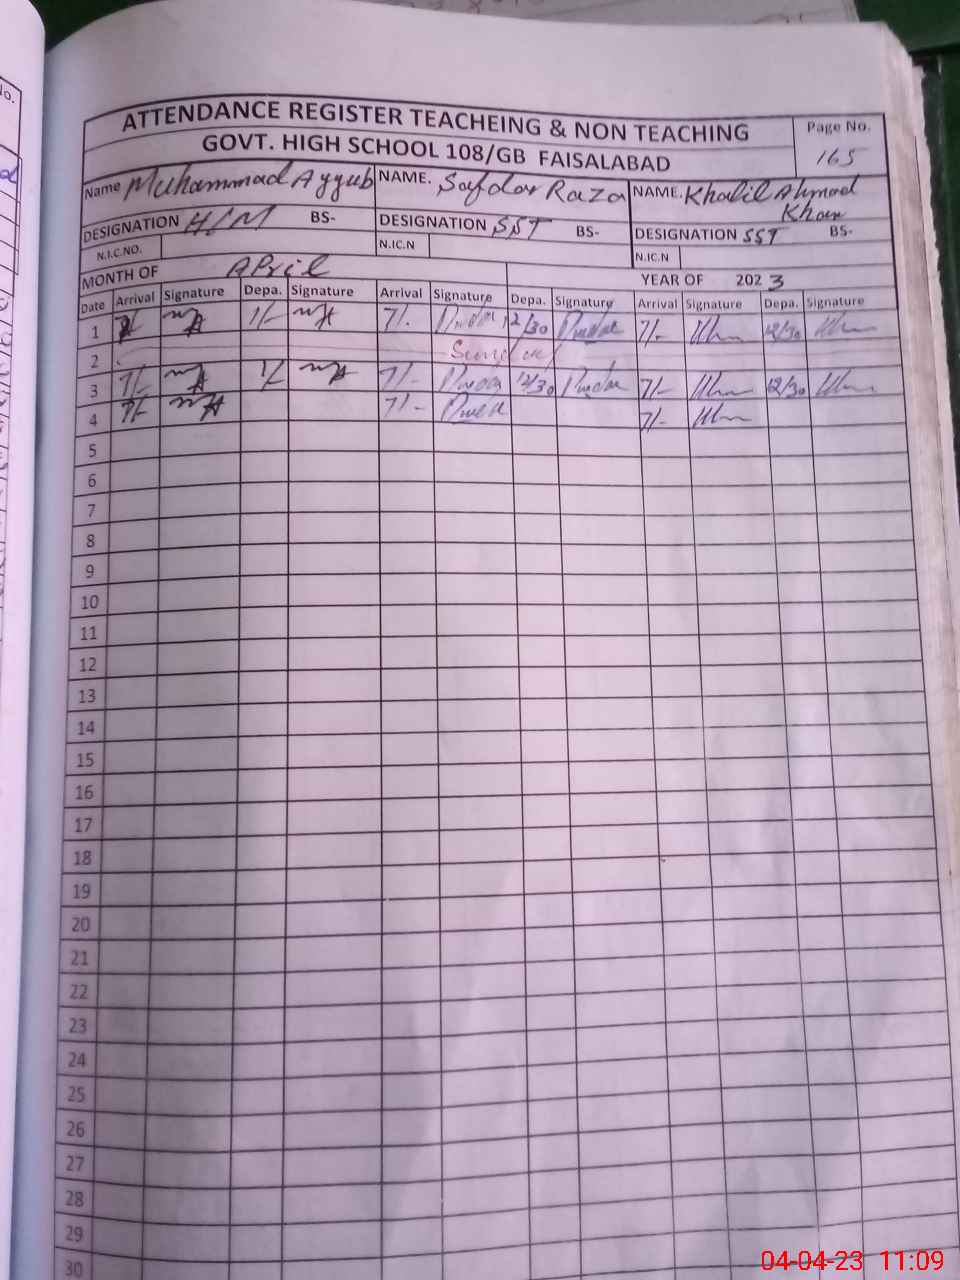 No.
ATTENDANCE REGISTER TEACHEING & NON TEACHING
GOVT. HIGH SCHOOL 108/GB FAISALABAD
Page No.
165
Name Muhammad Ayyub NAME. Safdar Raza NAME. Khalil Ahmad Khan
DESIGNATION H/M BS- DESIGNATION SST BS- DESIGNATION SST BS-
N.I.C.NO. N.IC.N N.IC.N
MONTH OF April YEAR OF 2023
Date Arrival Signature Depa. Signature Arrival Signature Depa. Signature Arrival Signature Depa. Signature
1 7/- 1/- 7/- 12/30 7/- 12/30
2
3 7/- 1/- 7/- 12/30 7/- 12/30
4 7/- 7/- 7/-
5
6
7
8
9
10
11
12
13
14
15
16
17
18
19
20
21
22
23
24
25
26
27
28
29
30
04-04-23 11:09